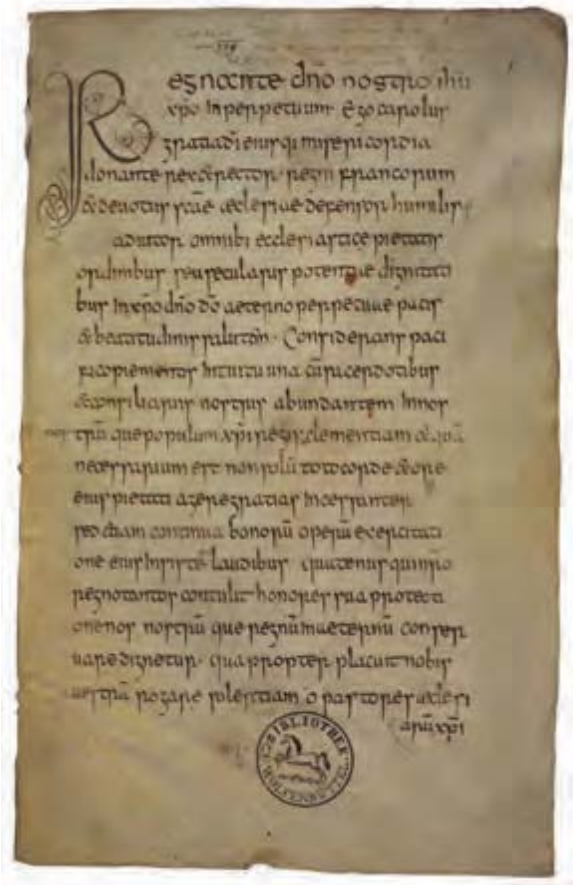 Regnante dño nostro ihu
xpo In perpetuum· Ego carolus
gratia di eiusq; misericordia
donante rex & rector regni francorum
& devotus scae aeclesiae defensor humilisq;
adiutor omnibs ecclesiastice pietatis
ordinibus seu secularis potentiae dignitati
bus In xpo dño do aeterno perpetuae pacis
& beatitudinis salutem· Considerans paci
fico pie mentis Intuitu una cū sacerdotibus
& consiliariis nostris abundantem In nos
nos trū que populum xpi regis clementiam & quā
necessarium est non solū toto corde & ore
eius pietati agere gratias Incessanter
sed etiam continua bonorū operū exercitati
one eius Insistere laudibus quatenus qui nro
regno tantos contulit honores sua protecti
one nos nostrū que regnum in aeternū conser
vare dignetur· qua propter placuit nobis
vestrā rogare solertiam o pastores aeclesi
arū xpi
BIBLIOTHEK
WOLFENBÜTTEL